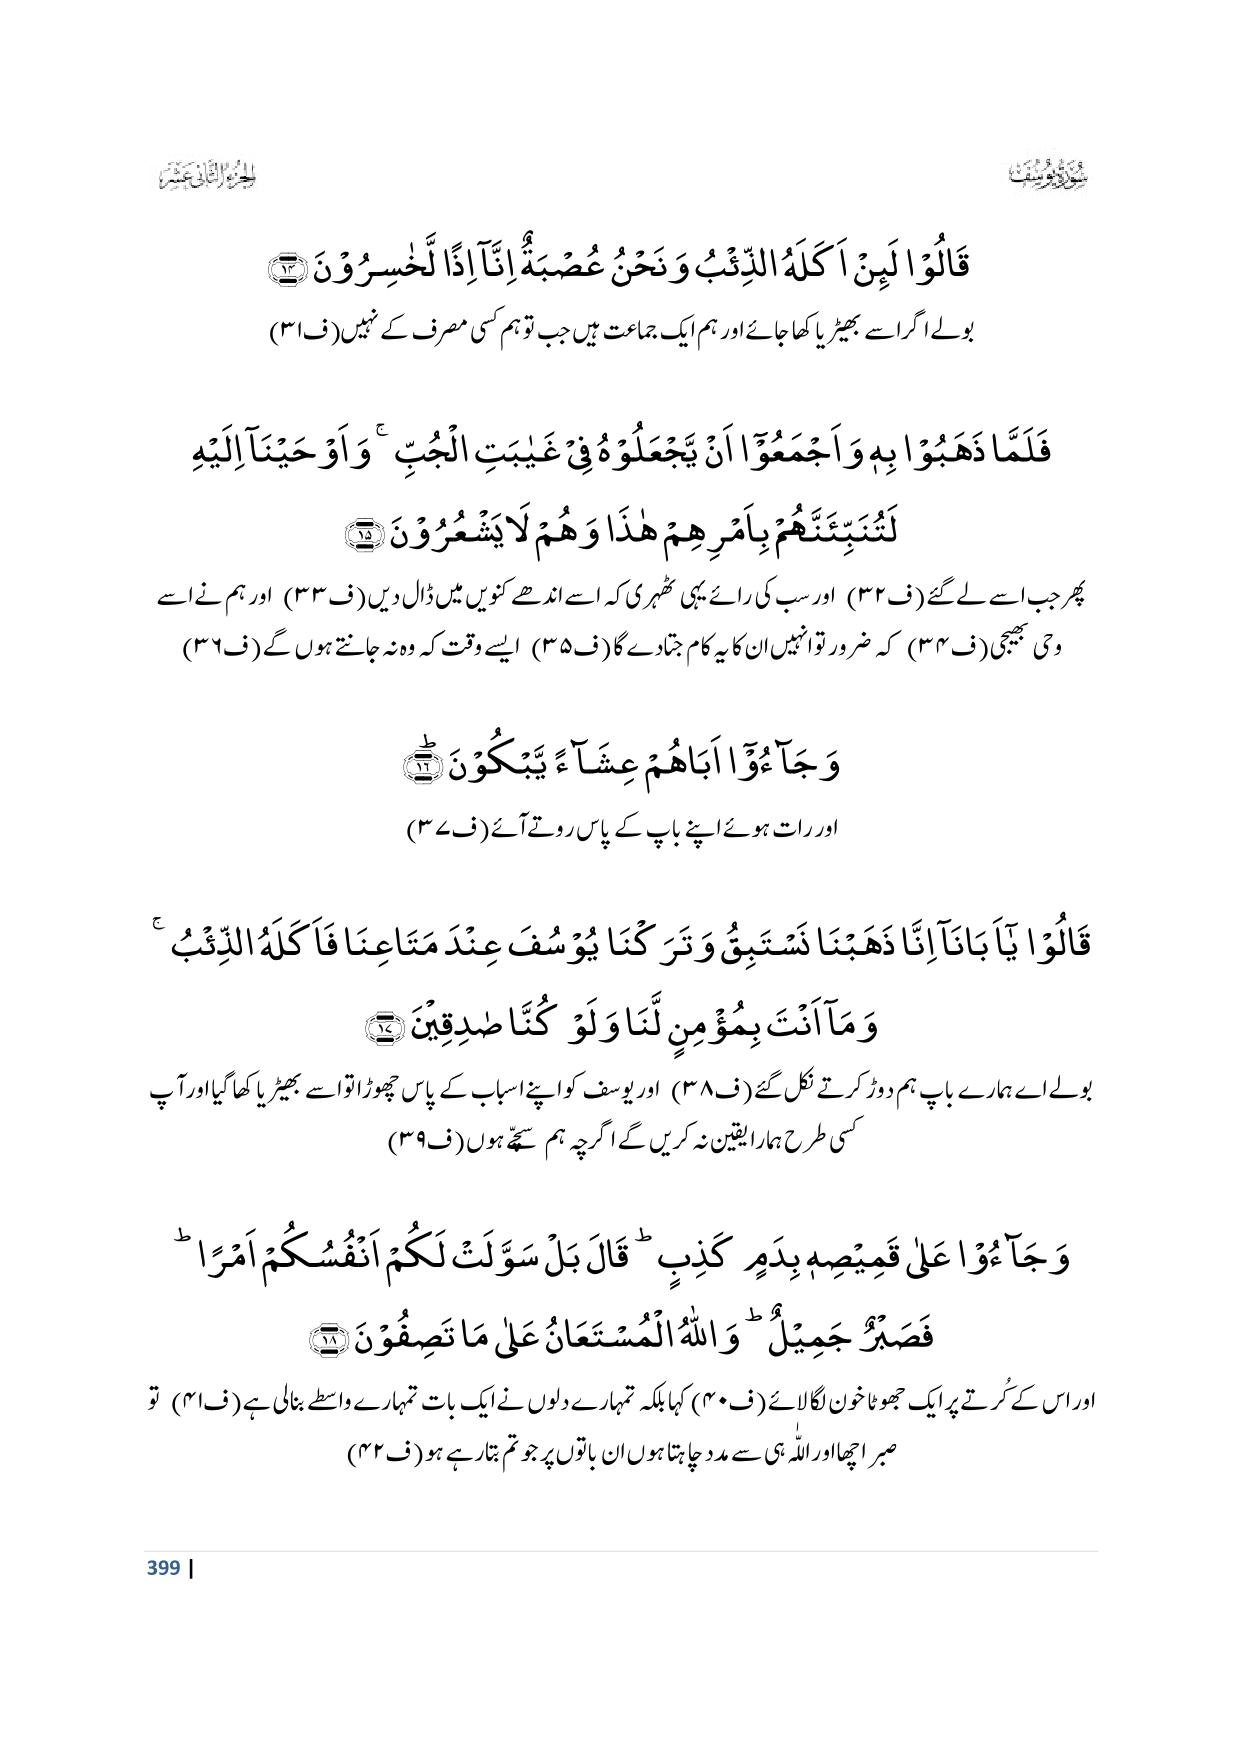 سُوْرَۃُ یُوْسُف
الجزء الثانی عشر
قَالُوْا لَئِنْ اَكَلَهُ الذِّئْبُ وَ نَحْنُ عُصْبَةٌ اِنَّاۤ اِذًا لَّخٰسِرُوْنَ ﴿۱۴﴾
بولے اگر اسے بھیڑیا کھا جائے اور ہم ایک جماعت ہیں جب تو ہم کسی مصرف کے نہیں (ف۳۱)
فَلَمَّا ذَهَبُوْا بِهٖ وَ اَجْمَعُوْۤا اَنْ یَّجْعَلُوْهُ فِیْ غَیٰبَتِ الْجُبِّ ۚ وَ اَوْحَیْنَاۤ اِلَیْهِ
لَتُنَبِّئَنَّهُمْ بِاَمْرِهِمْ هٰذَا وَ هُمْ لَا یَشْعُرُوْنَ ﴿۱۵﴾
پھر جب اسے لے گئے (ف۳۲) اور سب کی رائے یہی ٹھہری کہ اسے اندھے کنویں میں ڈال دیں (ف۳۳) اور ہم نے اسے
وحی بھیجی (ف۳۴) کہ ضرور تو انہیں ان کا یہ کام جتادے گا (ف۳۵) ایسے وقت کہ وہ نہ جانتے ہوں گے (ف۳۶)
وَ جَآءُوْۤا اَبَاهُمْ عِشَآءً یَّبْكُوْنَ ﴿ؕ۱۶﴾
اور رات ہوئے اپنے باپ کے پاس روتے آئے (ف۳۷)
قَالُوْا یٰۤاَبَانَاۤ اِنَّا ذَهَبْنَا نَسْتَبِقُ وَ تَرَكْنَا یُوْسُفَ عِنْدَ مَتَاعِنَا فَاَكَلَهُ الذِّئْبُ ۚ
وَ مَاۤ اَنْتَ بِمُؤْمِنٍ لَّنَا وَ لَوْ كُنَّا صٰدِقِیْنَ ﴿۱۷﴾
بولے اے ہمارے باپ ہم دوڑ کرتے نکل گئے (ف۳۸) اور یوسف کو اپنے اسباب کے پاس چھوڑا تو اسے بھیڑیا کھا گیا اور آپ
کسی طرح ہمارا یقین نہ کریں گے اگرچہ ہم سچّے ہوں (ف۳۹)
وَ جَآءُوْا عَلٰی قَمِیْصِهٖ بِدَمٍ كَذِبٍ ؕ قَالَ بَلْ سَوَّلَتْ لَكُمْ اَنْفُسُكُمْ اَمْرًا ؕ
فَصَبْرٌ جَمِیْلٌ ؕ وَ اللّٰهُ الْمُسْتَعَانُ عَلٰی مَا تَصِفُوْنَ ﴿۱۸﴾
اور اس کے کُرتے پر ایک جھوٹا خون لگا لائے (ف۴۰) کہا بلکہ تمہارے دلوں نے ایک بات تمہارے واسطے بنالی ہے (ف۴۱) تو
صبر اچھا اور اللّٰہ ہی سے مدد چاہتا ہوں ان باتوں پر جو تم بتا رہے ہو (ف۴۲)
399 |